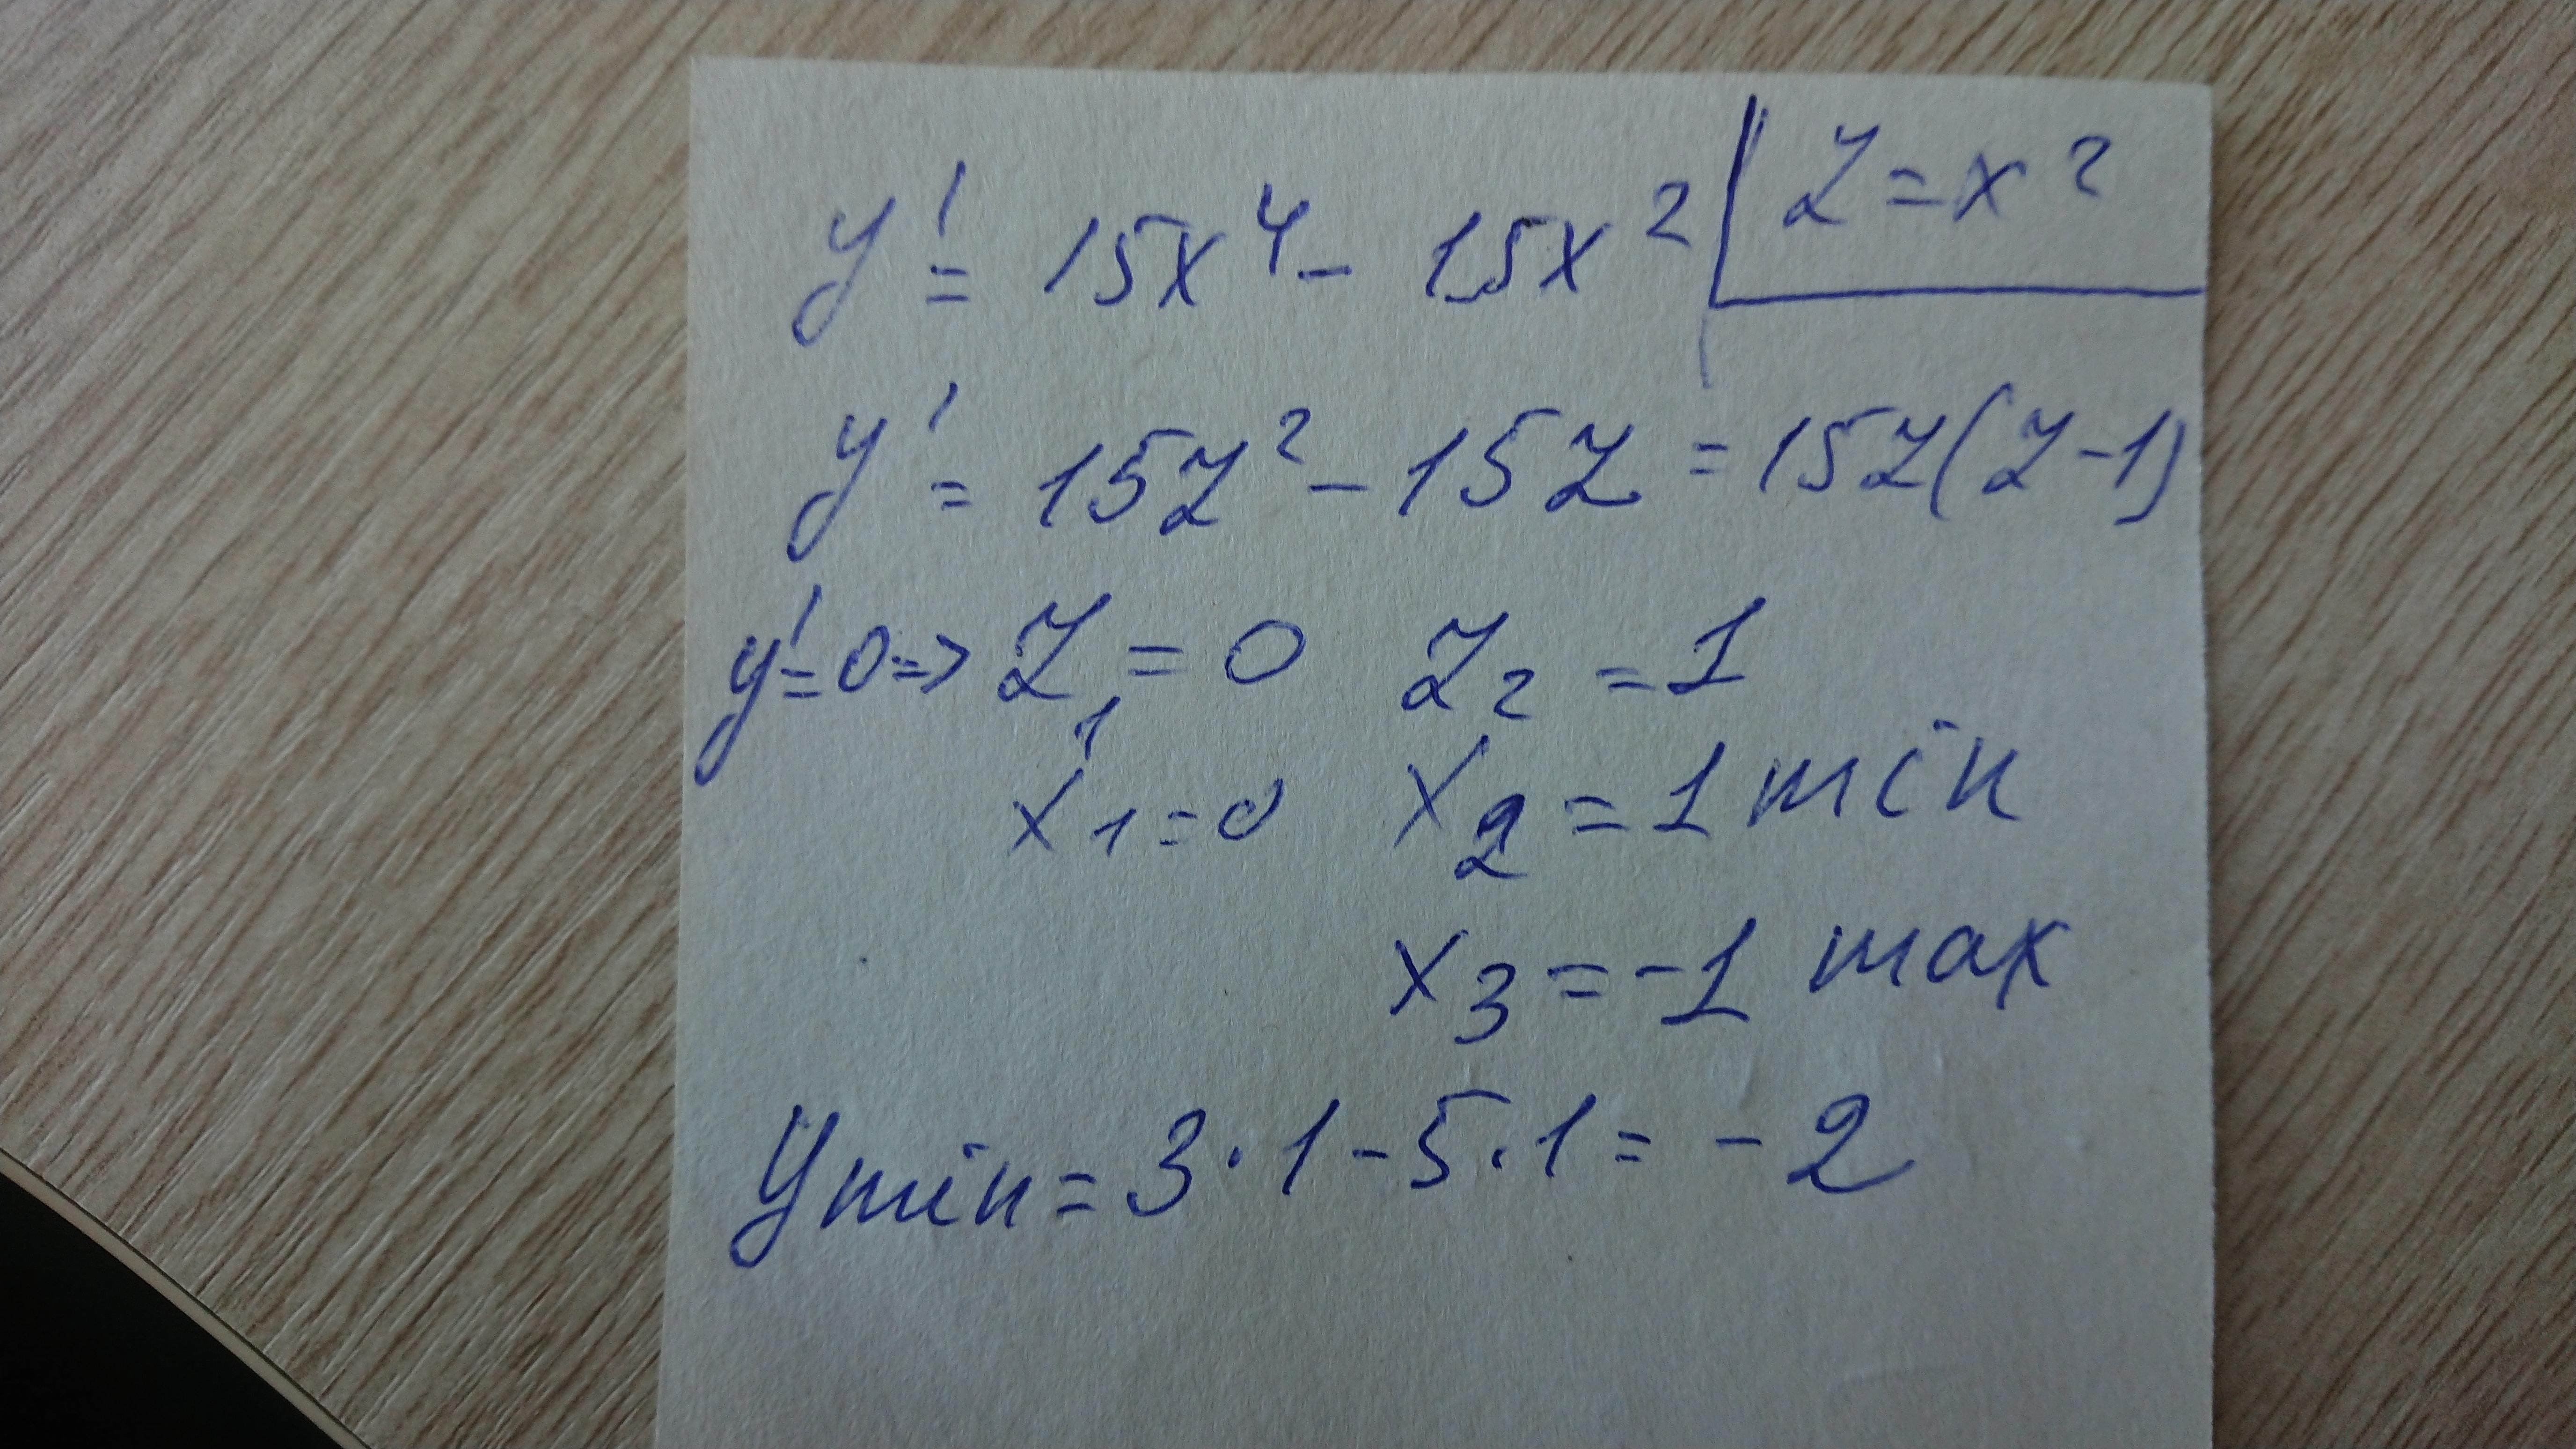 y' = 15x⁴ - 15x² | z = x²
y' = 15z² - 15z = 15z(z-1)
y'=0=> z₁ = 0 z₂ = 1
x₁=0 x₂ = 1 min
x₃ = -1 max
ymin = 3·1-5·1 = -2